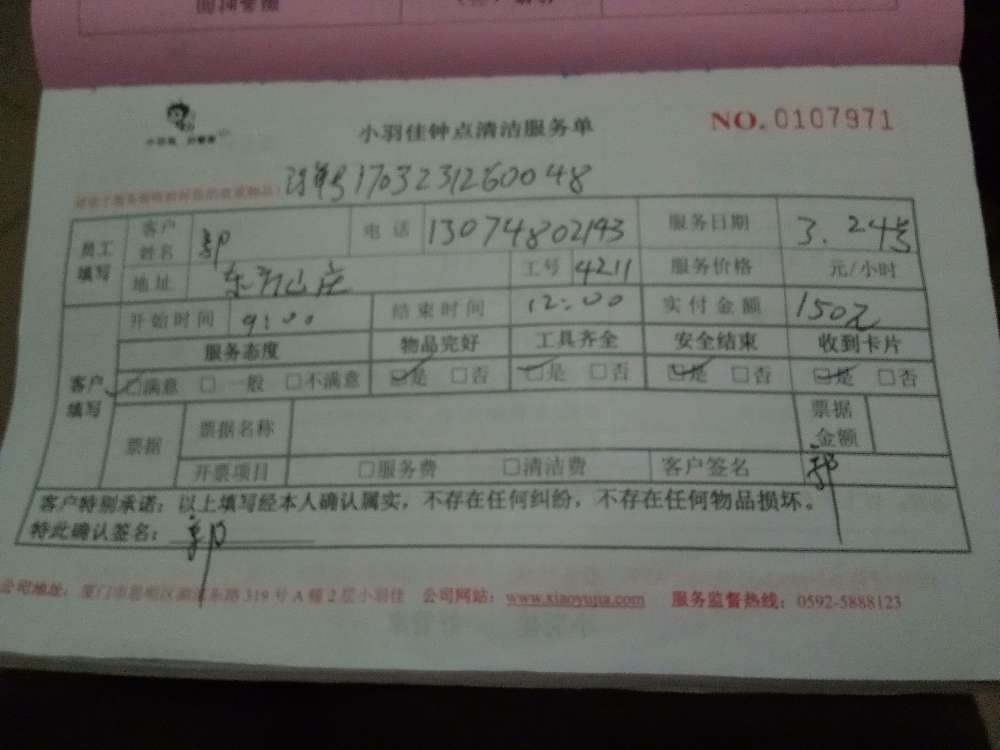 小羽佳钟点清洁服务单
NO. 0107971
详单号17032312600048
员工填写 客户姓名 郭 电话 13074802193 服务日期 3.24号
地址 工号 4211 服务价格 元/小时
客户填写 开始时间 9:00 结束时间 12:00 实付金额 150元
服务态度 物品完好 工具齐全 安全结束 收到卡片
☑满意 □一般 □不满意 ☑是 □否 ☑是 □否 ☑是 □否 ☑是 □否
票据 票据名称 票据金额
开票项目 □服务费 □清洁费 客户签名 郭
客户特别承诺：以上填写经本人确认属实，不存在任何纠纷，不存在任何物品损坏。
特此确认签名：郭
公司地址：厦门市思明区湖滨东路319号A幢2层小羽佳 公司网站：www.xiaoyujia.com 服务监督热线：0592-5888123